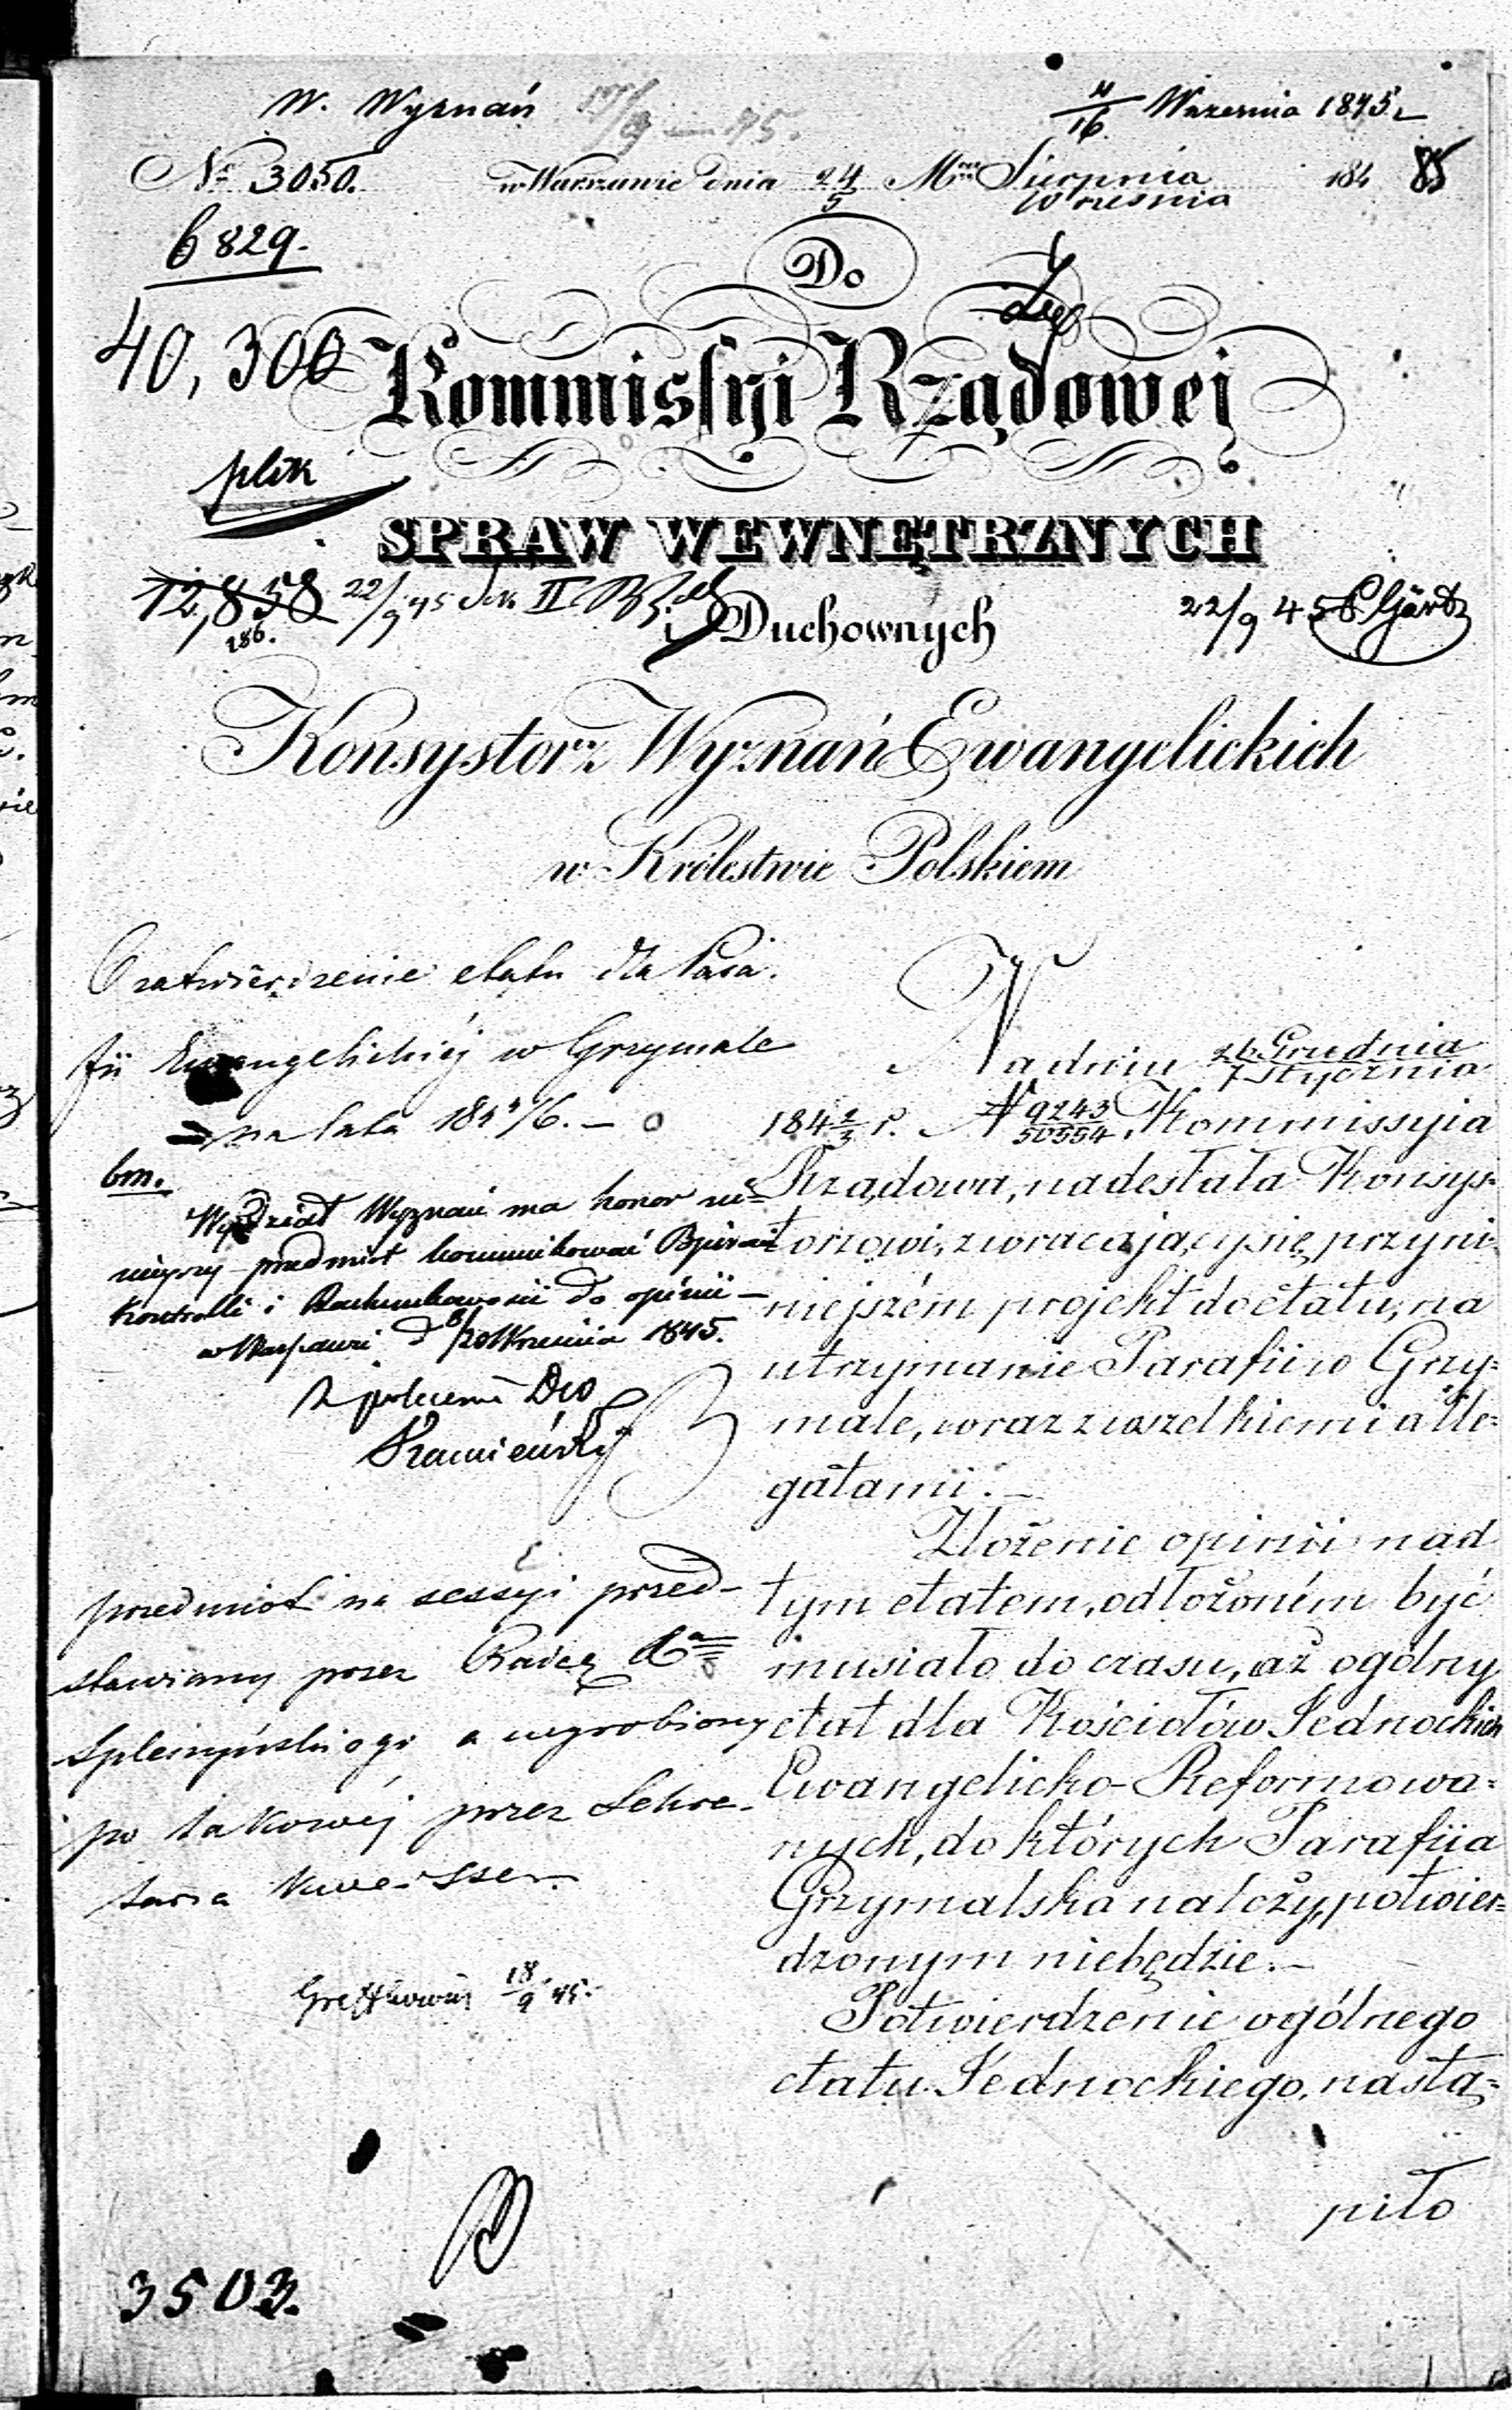 W. Wyznań 17/9 45.
4/16 Wrzesnia 1845 r
№ 3050. w Warszawie dnia 24/5 Mca Sierpnia/Wrzesnia 184 85
6829.
Do
40,300
Kommissyi Rządowej
plik
SPRAW WEWNĘTRZNYCH
12,858 22/9 45 II
186.
i Duchownych
22/9 45
Konsystorz Wyznań Ewangelickich
w Królestwie Polskiem
O zatwierdzenie etatu dla Para-
fii Ewangelickiéj w Grzymale
na lata 184 /6. –
bm.
Wydział Wyznań ma honor ni-
nieyszy przedmiot kommunikować
Kontrolli i Rachunkowości do opinii –
w Warszawie d 8/20 Wrzesnia 1845.
Z polecenia
Kamieński
przedmiot na sessyi przed-
stawiony przez Radcę
a wyrobiony
po takowéj przez Sekre-
tarza
18/9 45.
3503.
Na dniu 26 Grudnia/7 Stycznia
184 2/3 r. № 9243/50554, Kommissyia
Rządowa, nadesłała Konsys-
torzowi, zwracający się przy ni-
niejszém projekt do etatu, na
utrzymanie Parafii w Grzy=
male, wraz z wszelkiemi alle=
gatami. –
Złożenie opinii nad
tym etatem, odłożoném być
musiało do czasu, aż ogólny
etat dla Kościołów Jednockich
Ewangelicko-Reformowa=
nych, do których Parafiia
Grzymalska należy, potwier=
dzonym niebędzie. –
Potwierdzenie ogólnego
etatu Jednockiego, nastą=
piło